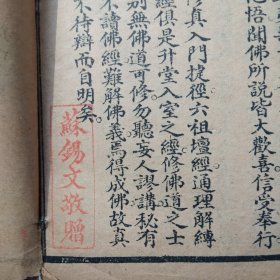 悟聞佛所説皆大歡喜信受奉行
修真入門捷徑六祖壇經通理解縛
經俱是升堂入室之經修佛道之士
別無佛道可修勿聽妄人謬講秘有
不讀佛經難解佛義焉得成佛故真
不待辯而自明矣
蘇錫文敬贈